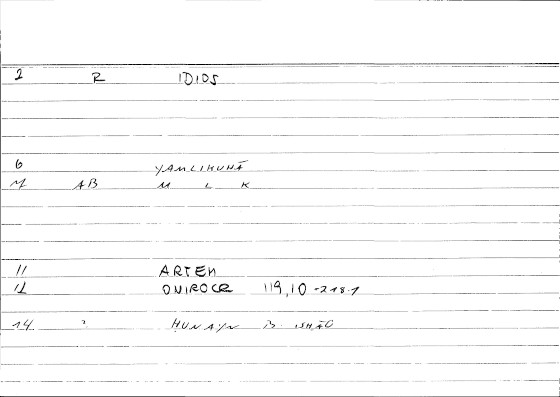 2 R IDIOS
6 YAMLIKUHĀ
7 AB M L K
11 ARTEM
12 ONIROCR 119,10 -218.1
14 ? HUNAYN B. ISHĀQ